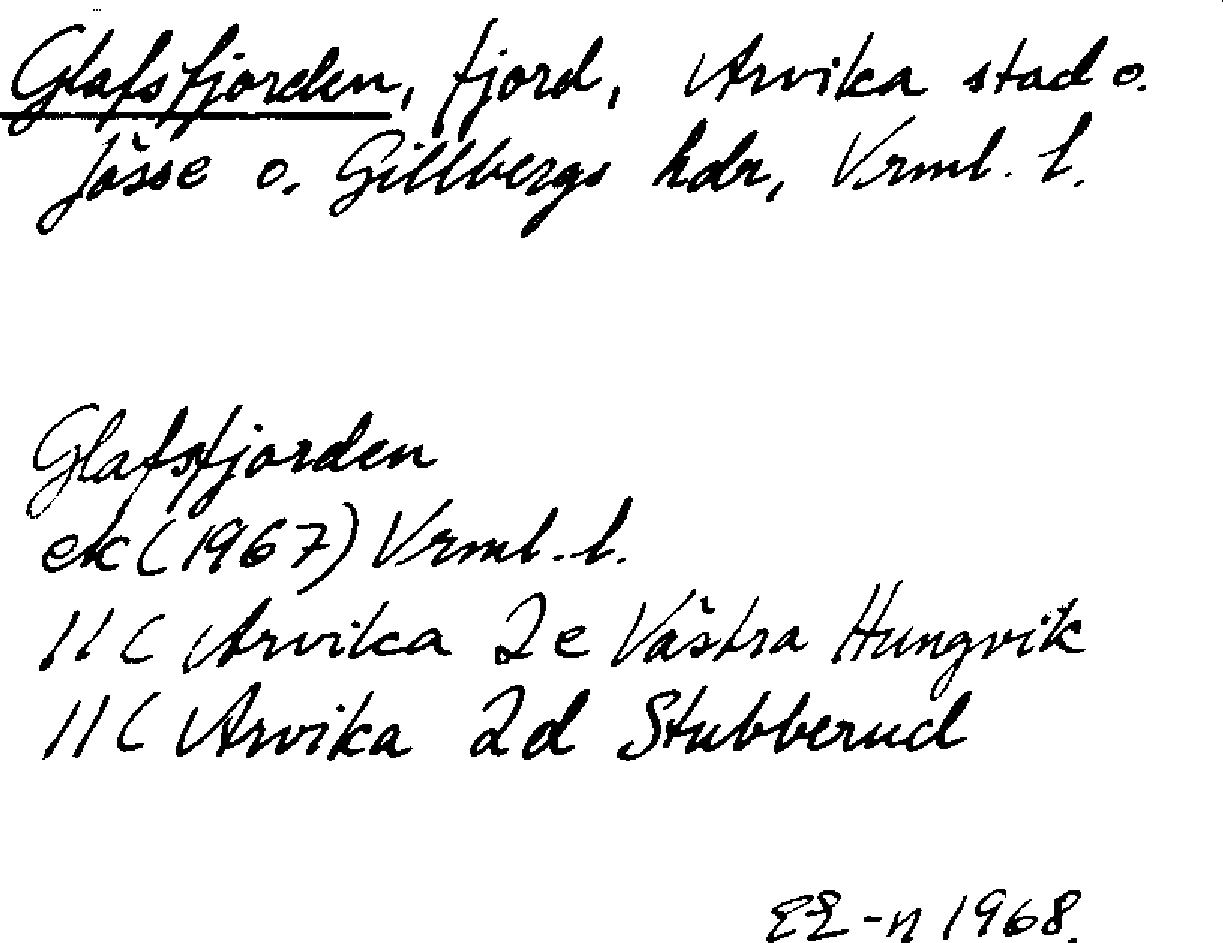 Glafsfjorden, fjord, Arvika stad o.
Jösse o. Gillbergs hdr, Vrml. l.
Glafsfjorden
ek (1967) Vrml. l.
11C Arvika 2e Västra Hungvik
11C Arvika 2d Stubberud
EE-n 1968.